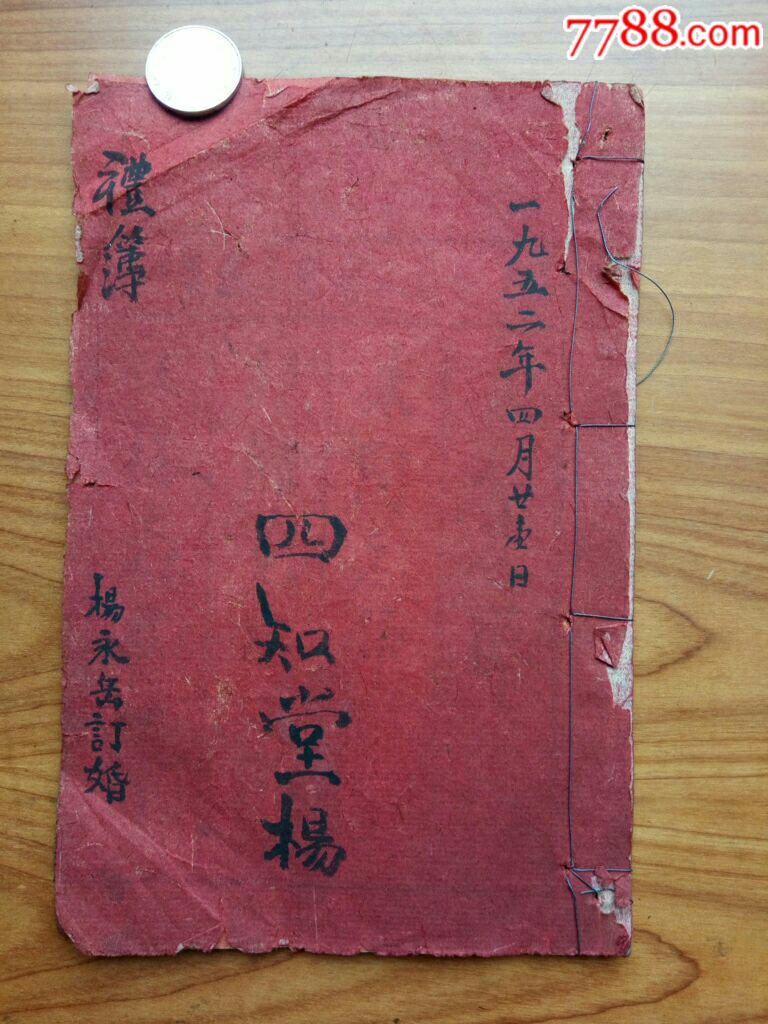 一九五二年四月廿壹日
四知堂楊
禮簿
楊永岳訂婚
7788.com